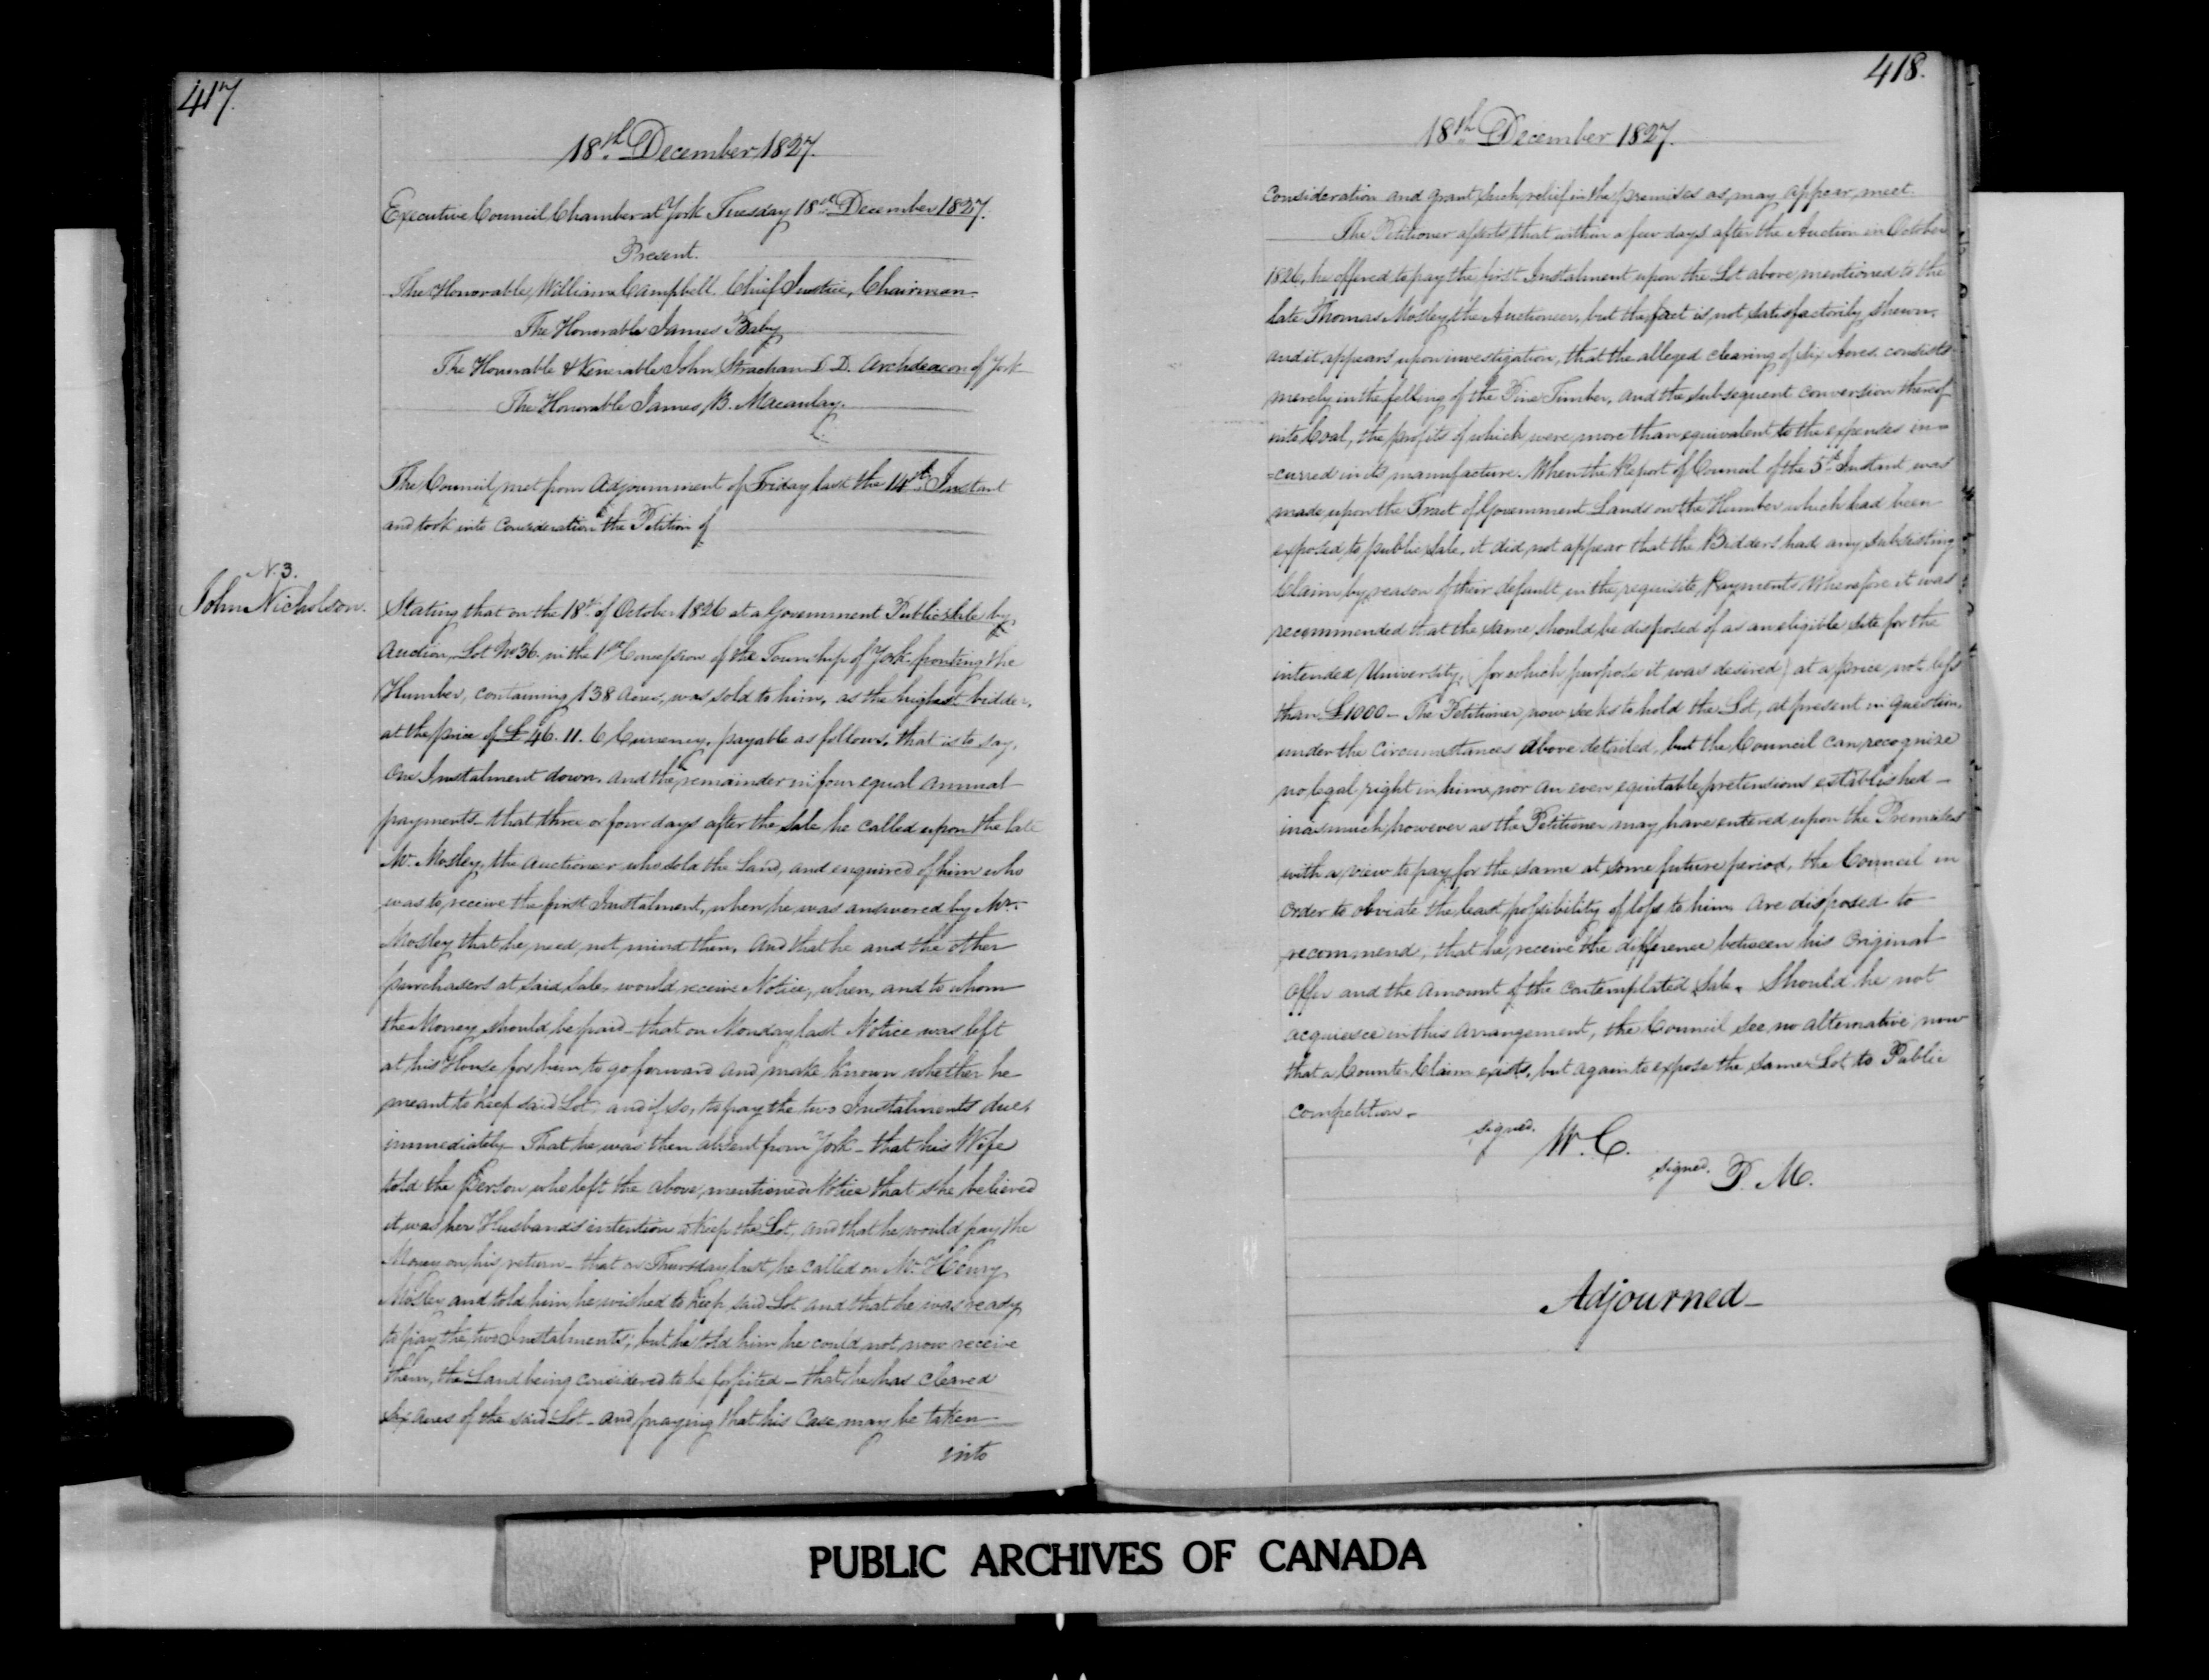 417.
18th December 1827.
Executive Council Chamber at York Tuesday 18th December 1827.
Present.
The Honorable William Campbell Chief Justice, Chairman.
The Honorable James Baby
The Honorable & Venerable John Strachan D. D. Archdeacon of York
The Honorable James B. Macaulay.
The Council met from Adjournment of Friday last the 14th Instant
and took into Consideration the Petition of
N. 3.
John Nicholson.
Stating that on the 18th of October 1826 at a Government Public Sale by
Auction, Lot No 36 in the 1st Concession of the Township of York fronting the
Humber, containing 138 Acres, was sold to him, as the highest bidder,
at the price of £46. 11. 6 Currency, payable as follows, that is to say,
One Instalment down, and the remainder in four equal annual
payments - that three or four days after the Sale he called upon the late
Mr Mosley, the Auctioneer who sold the Land, and enquired of him who
was to receive the first Instalment, when he was answered by Mr.
Mosley that he need not mind then, And that he and the other
purchasers at said Sale, would receive Notice, when, and to whom
the Money should be paid - that on Monday last Notice was left
at his House for him to go forward and make known whether he
meant to keep said Lot, and if so, to pay the two Instalments due,
immediately - That he was then absent from York - that his Wife
told the Person who left the above mentioned Notice that she believed
it was her Husbands intention to keep the Lot, and that he would pay the
Money on his return - that on Thursday last he called on Mr. Henry
Mosley and told him he wished to keep said Lot and that he was ready
to pay the two Instalments; but he told him he could not now receive
them, the Land being considered to be forfeited - that he has cleared
six acres of the said Lot - and praying that his Case may be taken
into
418.
18th December 1827.
Consideration and grant such relief in the premises as may appear meet.
The Petitioner asserts that within a few days after the Auction in October
1826, he offered to pay the first Instalment upon the Lot above mentioned to the
late Thomas Mosley the Auctioneer, but the fact is not satisfactorily shewn,
and it appears upon investigation, that the alleged clearing of Six Acres consists
merely in the felling of the Pine Timber, and the subsequent conversion thereof
into Coal, the profits of which were more than equivalent to the expenses in=
=curred in its manufacture. When the Report of Council of the 5th Instant was
made upon the Tract of Government Lands on the Humber which had been
exposed to public Sale, it did not appear that the Bidders had any subsisting
Claim by reason of their default in the requisite Payments, Wherefore it was
recommended that the same should be disposed of as an eligible site for the
intended University, (for which purpose it was desired) at a price not less
than £1000 - The Petitioner now seeks to hold the Lot, at present in question,
under the Circumstances above detailed, but the Council can recognize
no legal right in him, nor an even equitable pretensions established -
inasmuch however as the Petitioner may have entered upon the Premises
with a view to pay for the same at some future period, the Council in
Order to obviate the least possibility of loss to him are disposed to
recommend, that he receive the difference between his Original
Offer and the Amount of the contemplated Sale. Should he not
acquiesce in this arrangement, the Council see no alternative now
that a Counter Claim exists, but again to expose the same Lot to Public
Competition.
signed. W. C.
signed. P. M.
Adjourned -
PUBLIC ARCHIVES OF CANADA